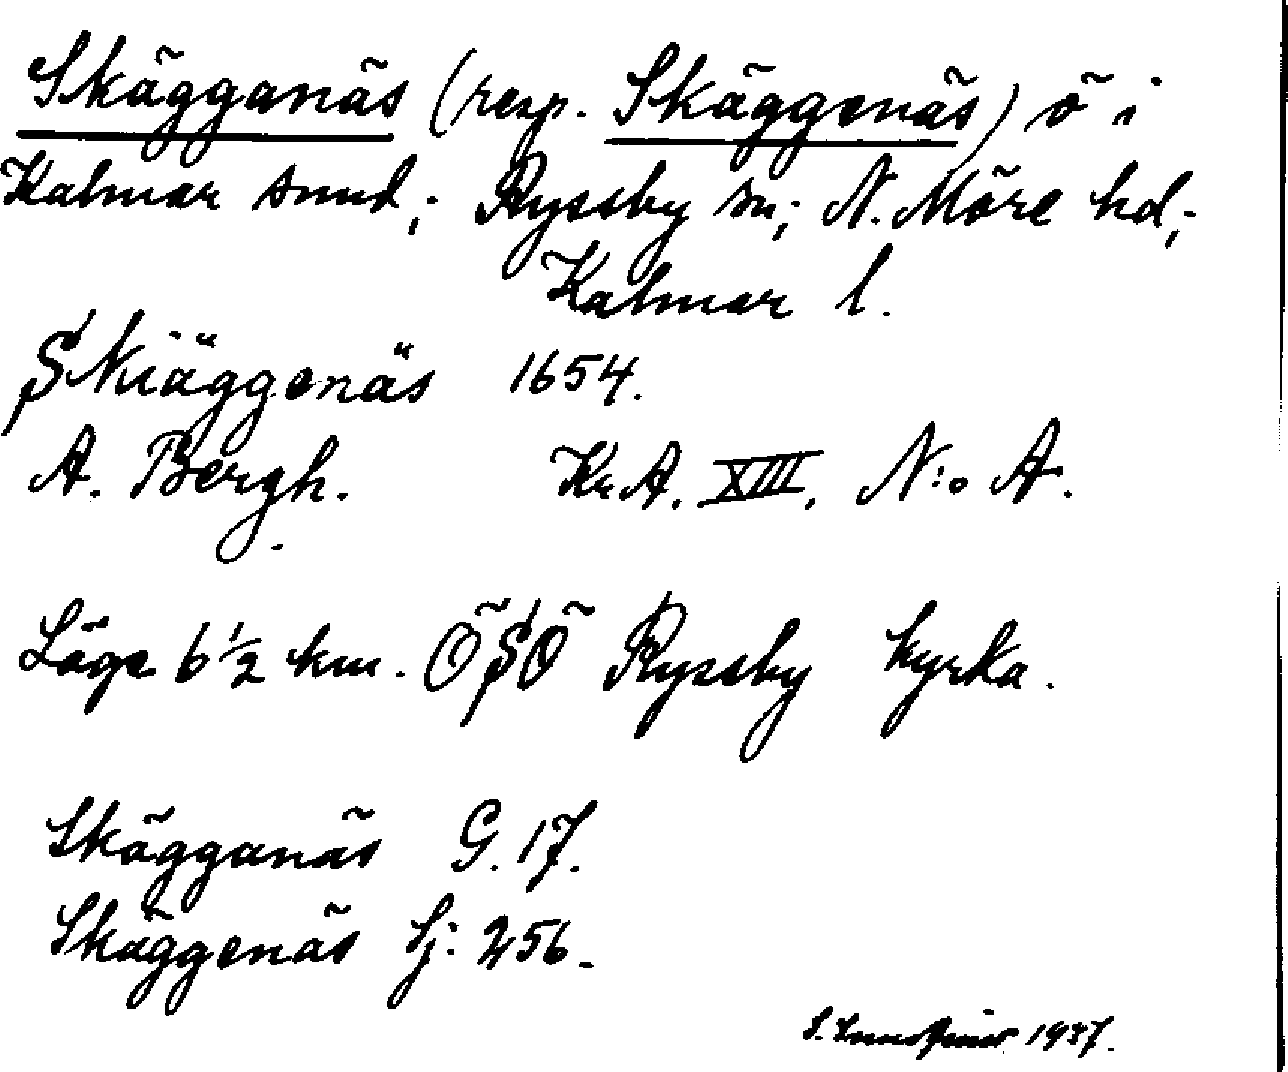 Skägganäs (resp. Skäggenäs) ö i
Kalmar sund,; Ryssby sn; N. Möre hd,;
Kalmar l.
Skiäggenäs 1654.
A. Bergh. Kr.A. XIII. N:o A.
Läge 6 1/2 km. ÖSÖ Ryssby kyrka.
Skägganäs G. 17.
Skäggenäs Sj: 256.
S. 1937.